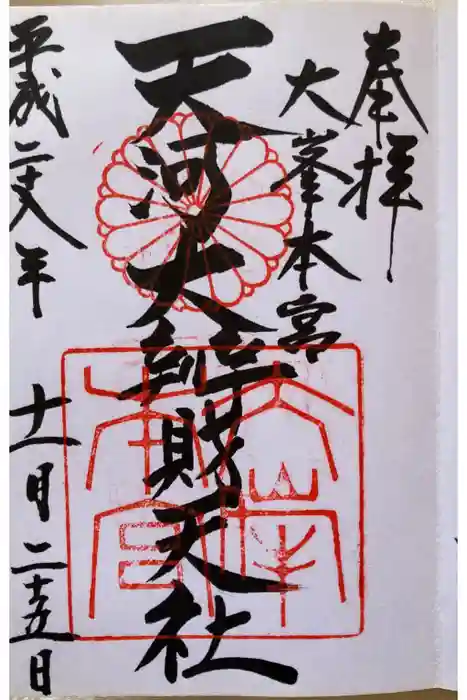 奉拝
大峯本宮
天河大辨財天社
大峯本宮
平成二十八年
十一月二十五日